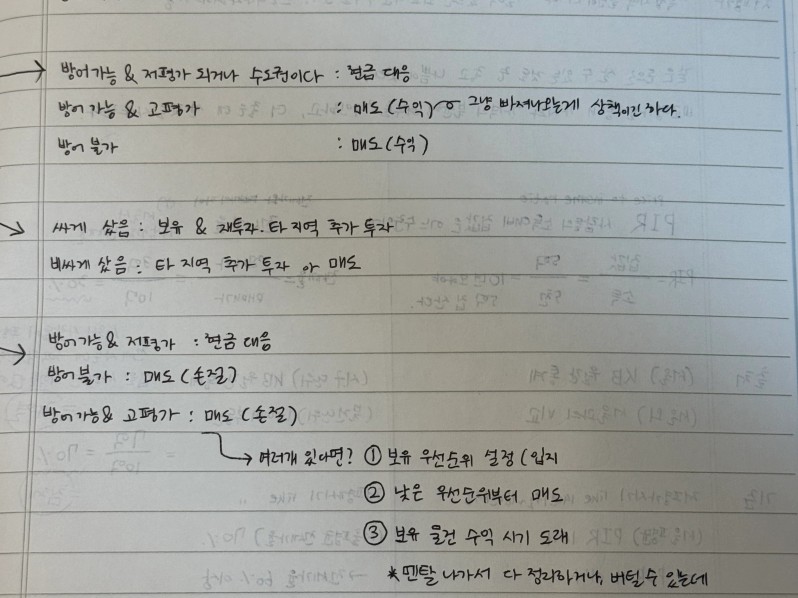 방어가능 & 저평가 되거나 수도권이다 : 현금 대응
방어 가능 & 고평가 : 매도 (수익) 그냥 빠져나오는게 상책이긴 하다.
방어 불가 : 매도 (수익)
싸게 샀음 : 보유 & 재투자. 타 지역 추가 투자
비싸게 샀음 : 타 지역 추가 투자 or 매도
방어가능 & 저평가 : 현금 대응
방어불가 : 매도 (손절)
방어가능 & 고평가 : 매도 (손절)
→ 여러개 있다면? ① 보유 우선순위 설정 (입지
② 낮은 우선순위부터 매도
③ 보유 물건 수익 시기 도래
* 멘탈 나가서 다 정리하거나, 버틸 수 있는데